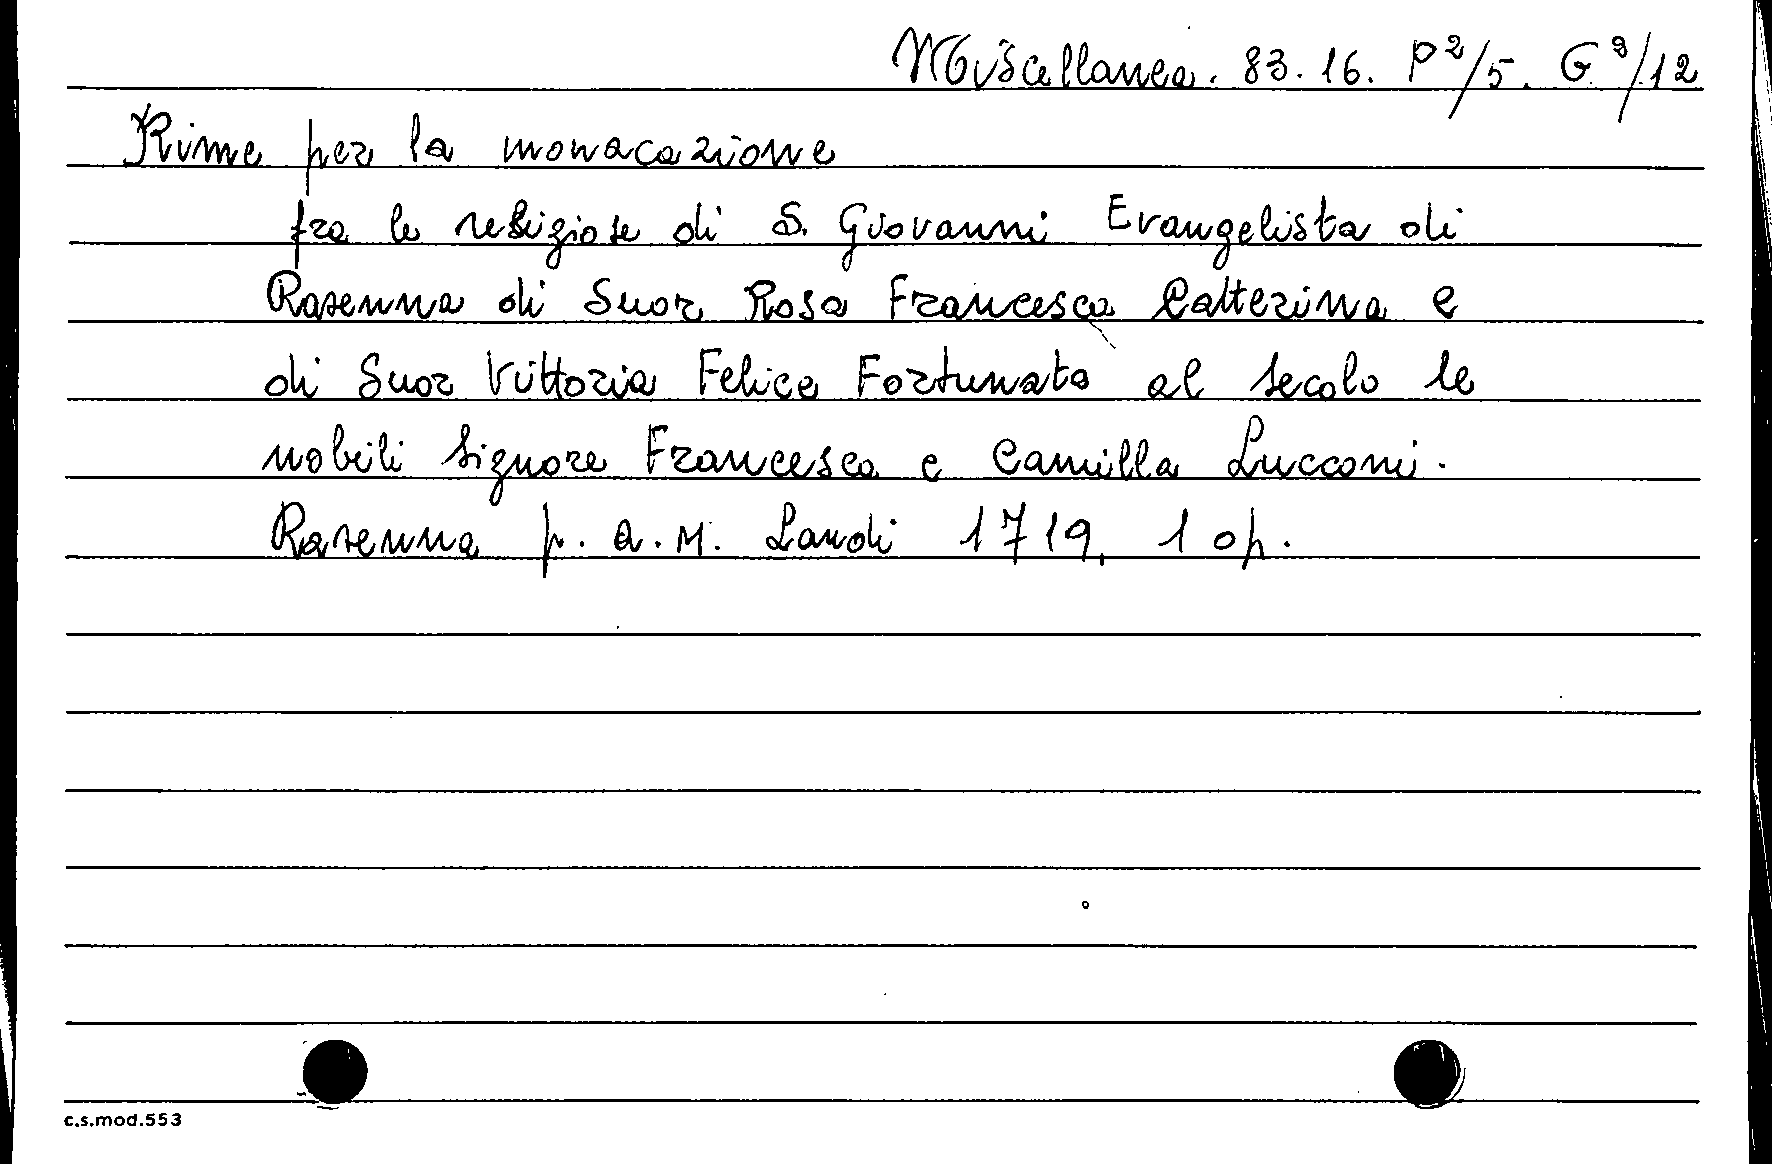 Miscellanea. 83. 16. P²/5. G⁹/12
Rime per la monacazione
fra le religiose di S. Giovanni Evangelista di
Ravenna di Suor Rosa Francesca Catterina e
di Suor Vittoria Felice Fortunata al secolo le
nobili signore Francesca e Camilla Lucconi.
Ravenna p. A. M. Landi 1719, 1 op.
c.s.mod.553